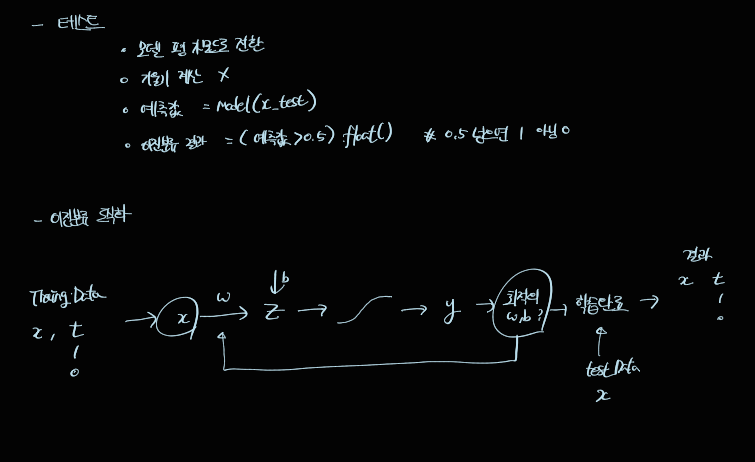 - 테스트
• 모델 평가모드로 전환
• 기울기 계산 X
• 예측값 = model(x_test)
• 이진분류 결과 = (예측값 >0.5).float() # 0.5 넘으면 1 아님 0
- 이진분류 도식화
Training Data
x, t
1
0
x
w
b
z
y
최적의
w,b ?
학습완료
test Data
x
결과
x t
1
0